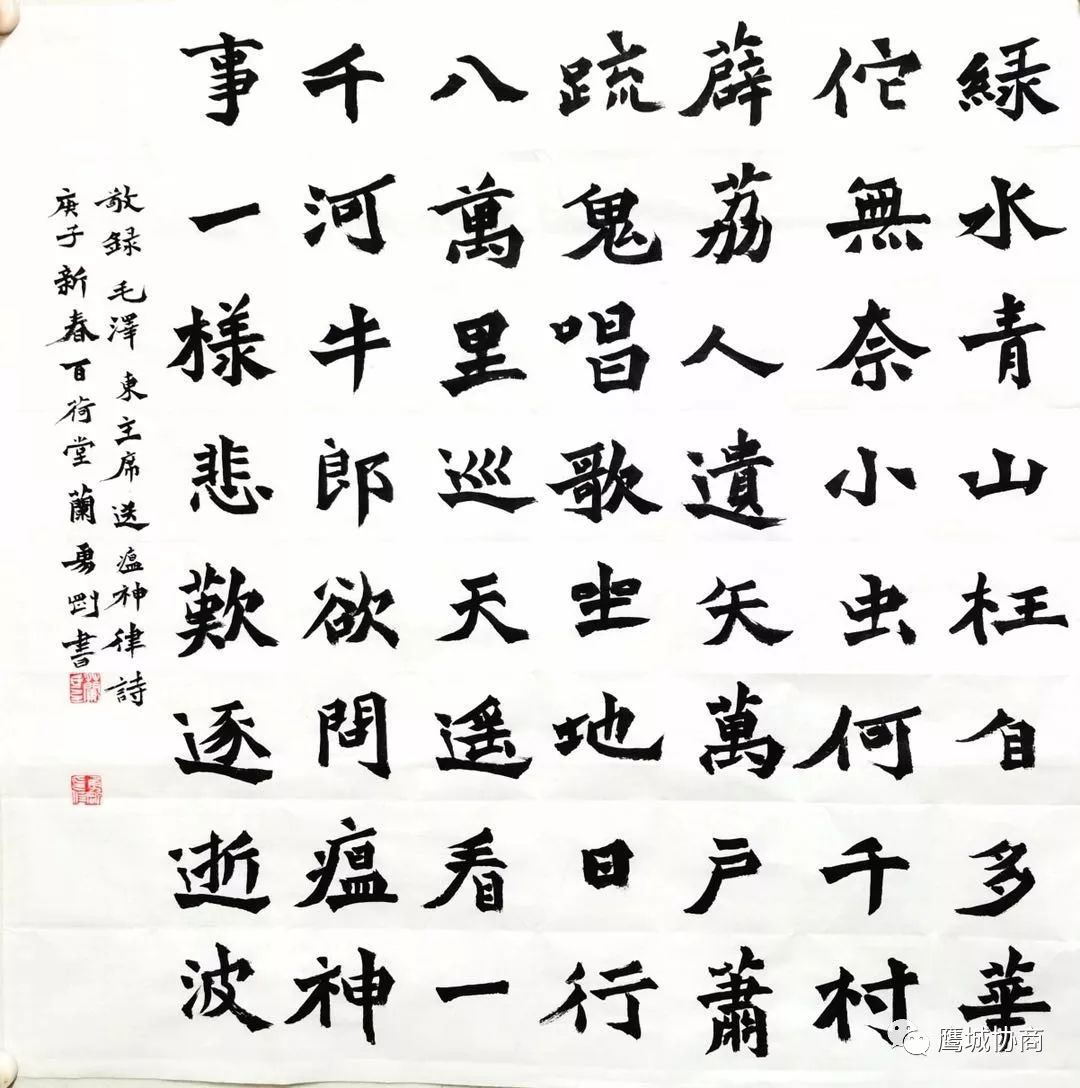 緑水青山枉自多華
佗無奈小虫何千村
薜荔人遺矢萬戸蕭
踈鬼唱歌坐地日行
八萬里巡天遥看一
千河牛郎欲問瘟神
事一樣悲歎逐逝波
敬録毛澤東主席送瘟神律詩
庚子新春百荷堂蘭勇剛書
鹰城协商